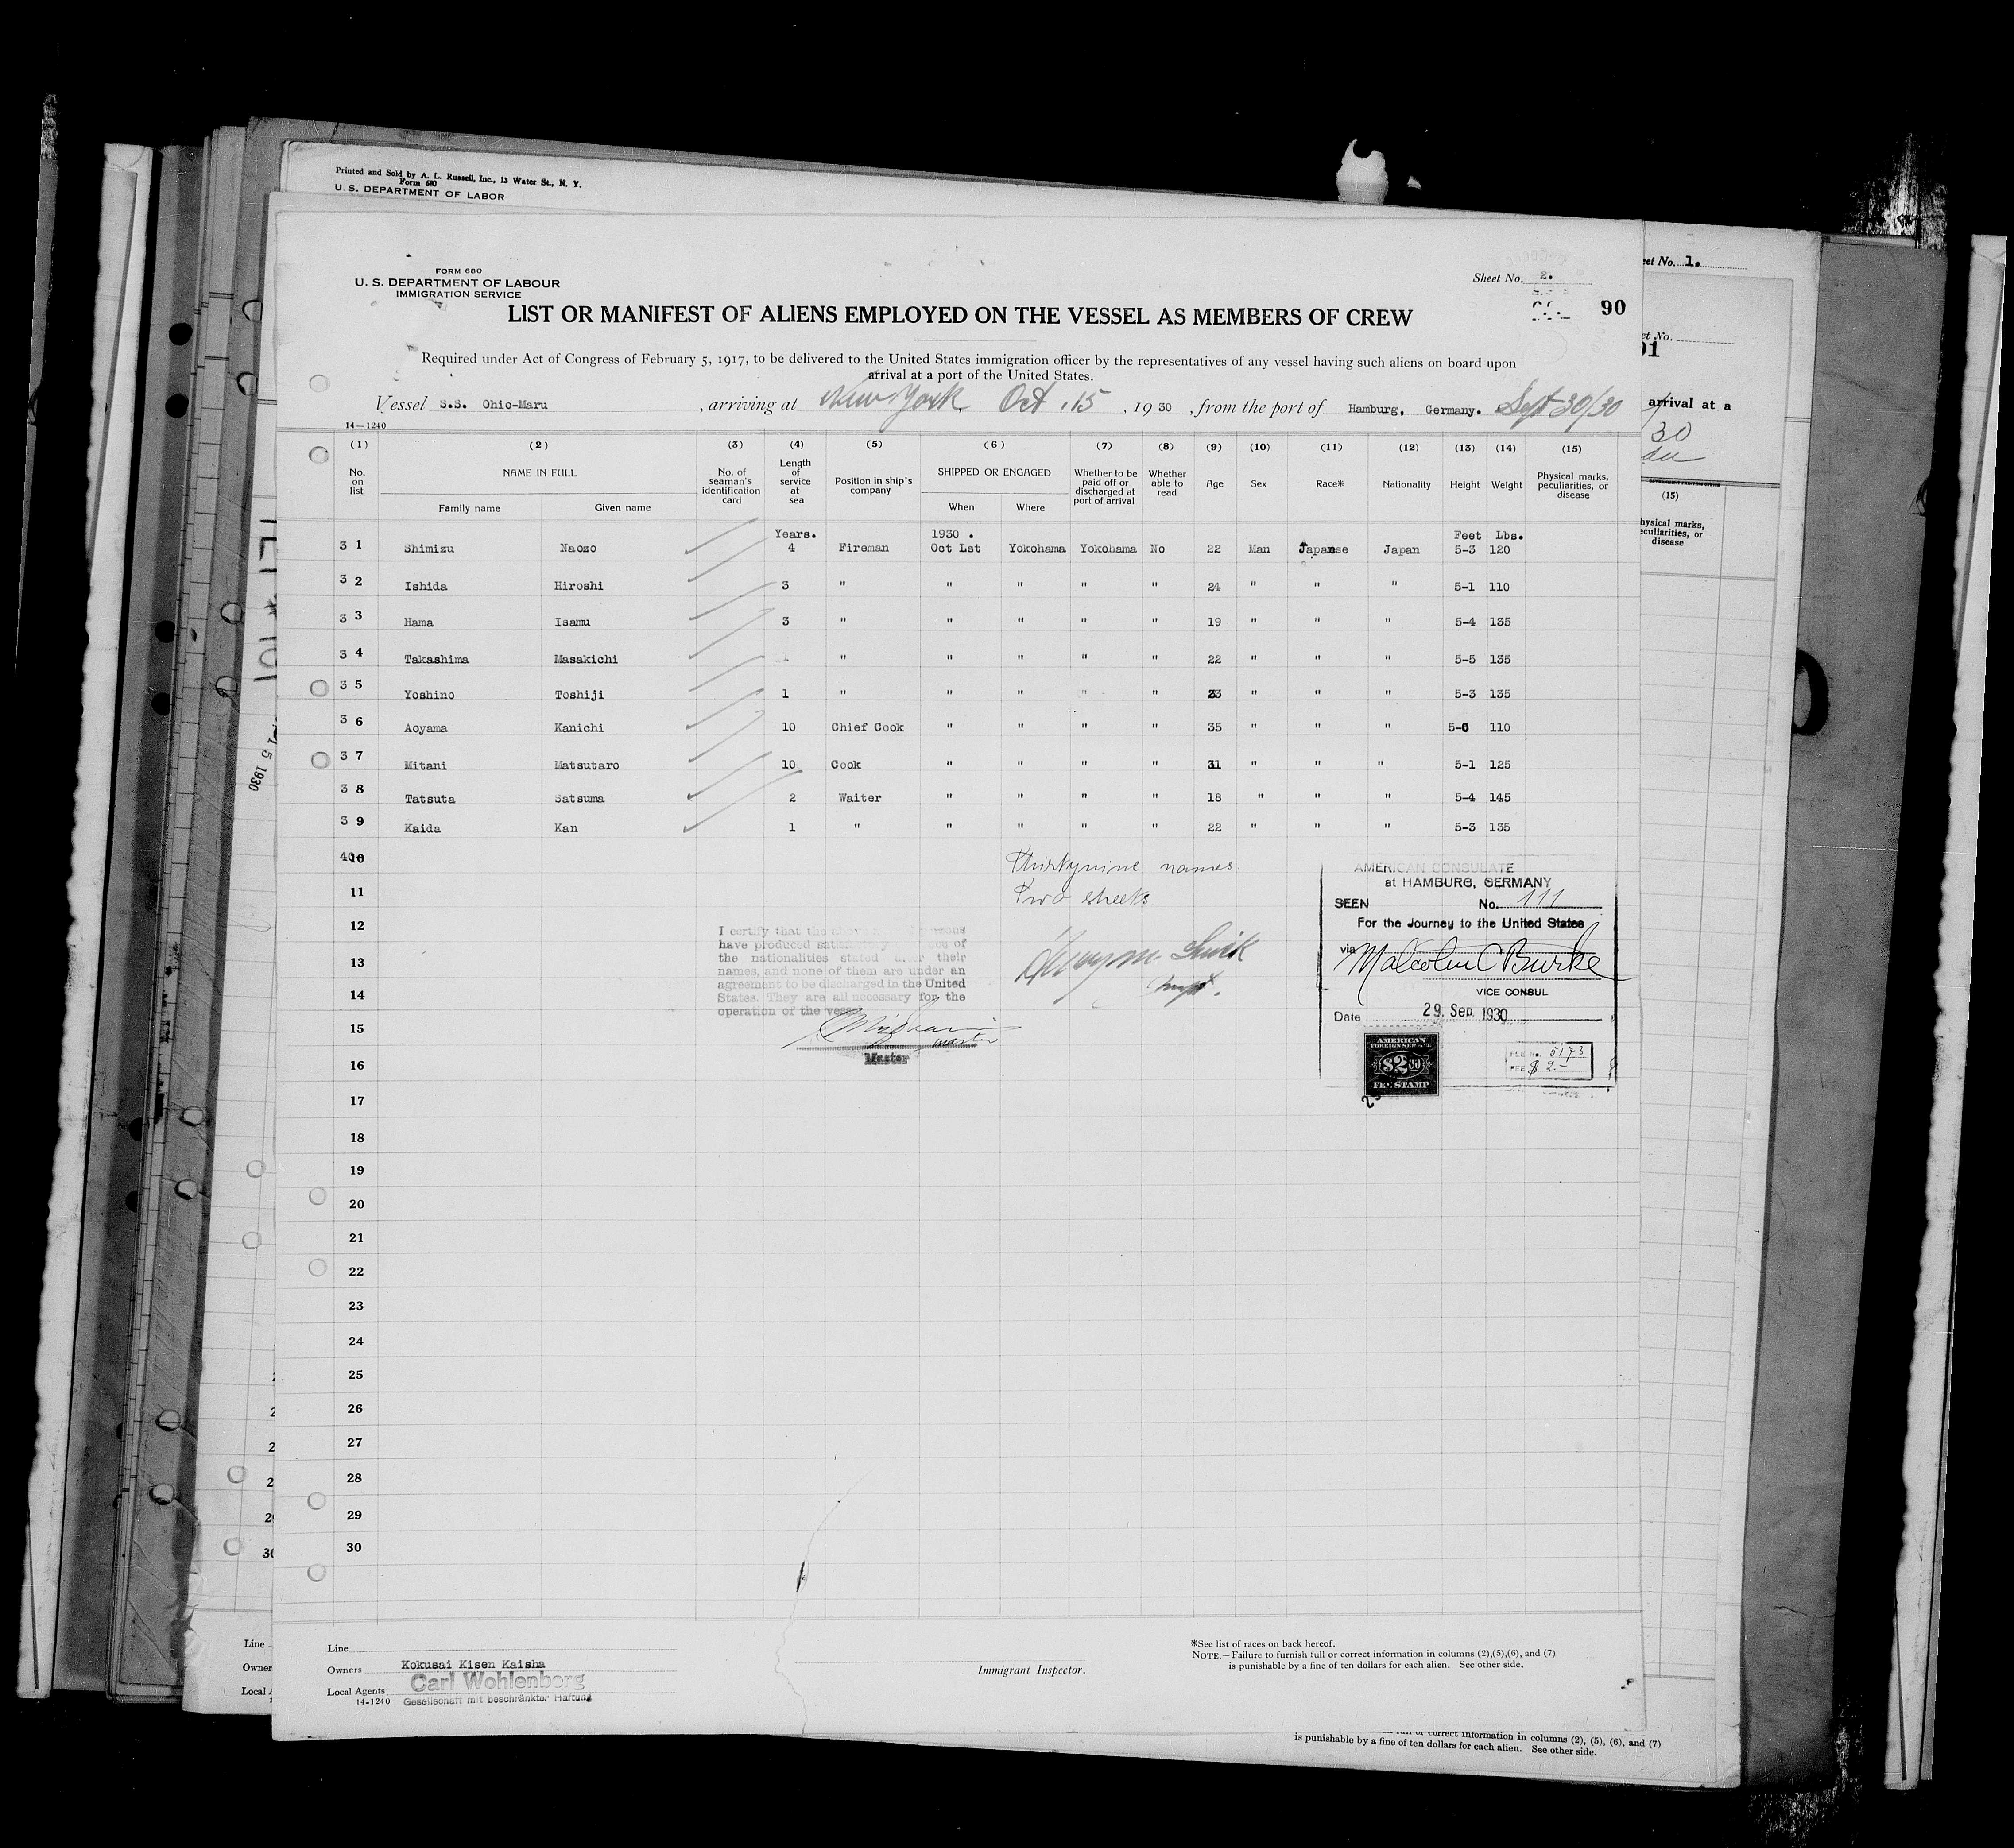 Printed and Sold by A. L. Russell, Inc., 13 Water St., N. Y.
Form 680
U. S. DEPARTMENT OF LABOR
Sheet No. 1.
FORM 680
U. S. DEPARTMENT OF LABOUR
IMMIGRATION SERVICE
Sheet No. 2.
90
LIST OR MANIFEST OF ALIENS EMPLOYED ON THE VESSEL AS MEMBERS OF CREW
Required under Act of Congress of February 5, 1917, to be delivered to the United States immigration officer by the representatives of any vessel having such aliens on board upon
arrival at a port of the United States.
Vessel S.S. Ohio-Maru, arriving at New York Oct. 15, 1930, from the port of Hamburg, Germany. Sept 30/30
14—1240
(1) (2) (3) (4) (5) (6) (7) (8) (9) (10) (11) (12) (13) (14) (15)
No. on list NAME IN FULL No. of seaman's identification card Length of service at sea Position in ship's company SHIPPED OR ENGAGED Whether to be paid off or discharged at port of arrival Whether able to read Age Sex Race* Nationality Height Weight Physical marks, peculiarities, or disease
Family name Given name When Where
Years. 1930 . Feet Lbs.
3 1 Shimizu Naozo 4 Fireman Oct Lst Yokohama Yokohama No 22 Man Japanse Japan 5-3 120
3 2 Ishida Hiroshi 3 " " " " " 24 " " " 5-1 110
3 3 Hama Isamu 3 " " " " " 19 " " " 5-4 135
3 4 Takashima Masakichi " " " " " 22 " " " 5-5 135
3 5 Yoshino Toshiji 1 " " " " " 23 " " " 5-3 135
3 6 Aoyama Kanichi 10 Chief Cook " " " " 35 " " " 5-0 110
3 7 Mitani Matsutaro 10 Cook " " " " 31 " " " 5-1 125
3 8 Tatsuta Satsuma 2 Waiter " " " " 18 " " " 5-4 145
3 9 Kaida Kan 1 " " " " " 22 " " " 5-3 135
40 10
Thirtynine names
11
Two sheets
12
13
14
15
16
17
18
19
20
21
22
23
24
25
26
27
28
29
30
I certify that the above persons
have produced satisfactory of
the nationalities stated after their
names, and none of them are under an
agreement to be discharged in the United
States. They are all necessary for the
operation of the vessel
master
Master
AMERICAN CONSULATE
at HAMBURG, GERMANY
SEEN No. 111
For the Journey to the United States
via
Malcolm C Burke
VICE CONSUL
Date 29. Sep. 1930
AMERICAN
FOREIGN SERVICE
$2.00
FEE STAMP
FEE No. 5173
FEE $ 2.-
Line
Owners Kokusai Kisen Kaisha
Local Agents Carl Wohlenberg
14-1240 Gesellschaft mit beschränkter Haftung
Immigrant Inspector.
*See list of races on back hereof.
NOTE.—Failure to furnish full or correct information in columns (2),(5),(6), and (7)
is punishable by a fine of ten dollars for each alien. See other side.
correct information in columns (2), (5), (6), and (7)
is punishable by a fine of ten dollars for each alien. See other side.